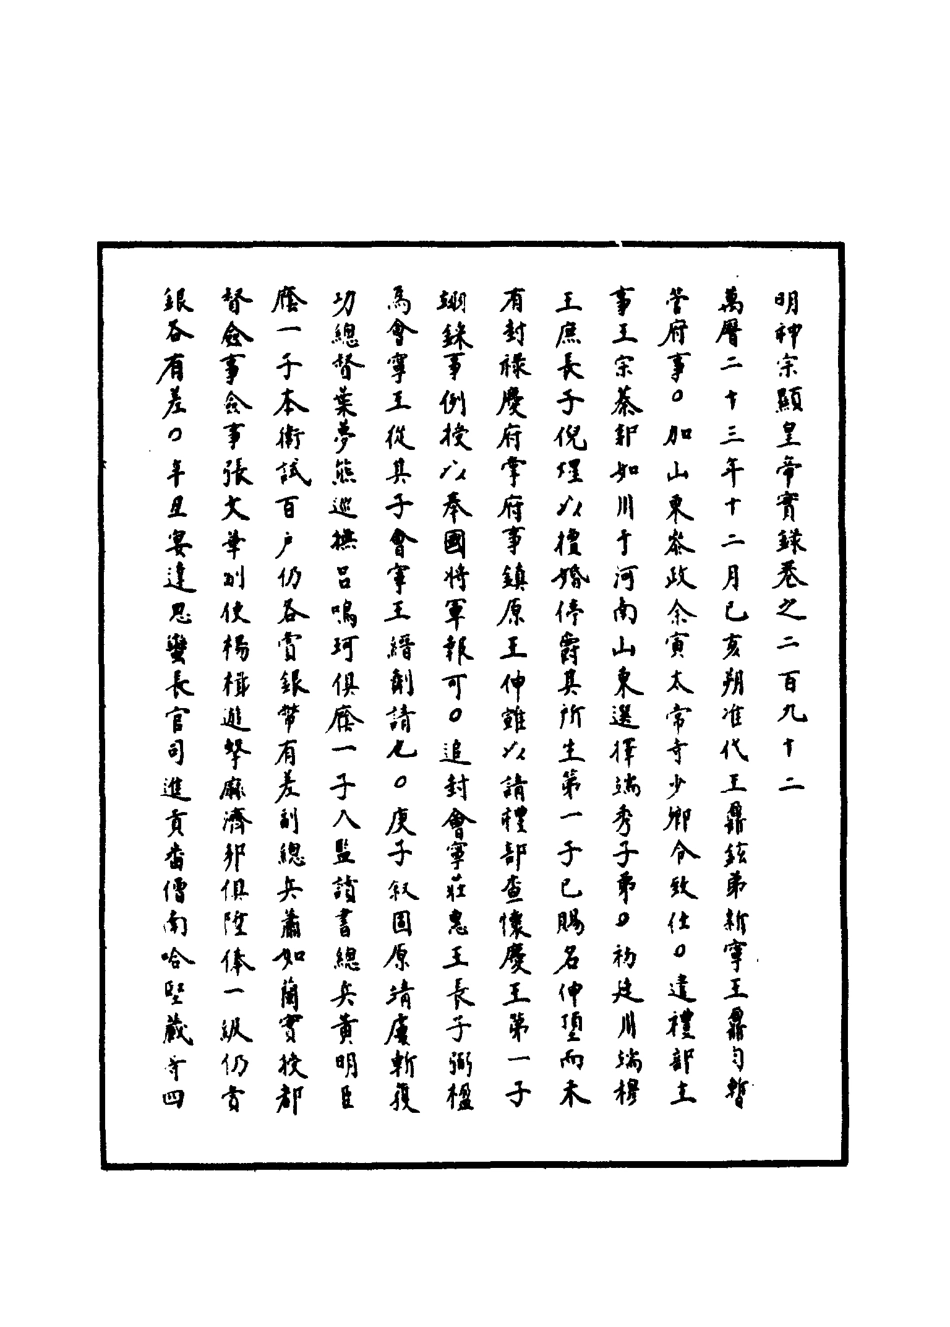 明神宗顯皇帝實錄卷之二百九十二
萬曆二十三年十二月己亥朔准代王鼐鉉弟新寧王鼐勻暫
管府事○加山東叅政余寅太常寺少卿令致仕○遣禮部主
事王宗蓁郭如川于河南山東選擇端秀子弟○初延川端穆
王庶長子倪埋以擅婚停爵其所生第一子已賜名伸頂而未
有封祿慶府掌府事鎮原王伸䧹以請禮部查懷慶王第一子
翊銖事例授以奉國將軍報可○追封會寧莊惠王長子弼楹
為會寧王從其子會寧王縉劑請也○庚子叙固原靖虜斬獲
功總督葉夢熊巡撫呂鳴珂俱廕一子入監讀書總兵黃明臣
廕一子本衛試百户仍各賞銀幣有差副總兵蕭如蘭實授都
督僉事僉事張文華副使楊楫遊擊麻濟邦俱陞俸一級仍賞
銀各有差○辛丑宴達思蠻長官司進貢畨僧南哈堅藏等四